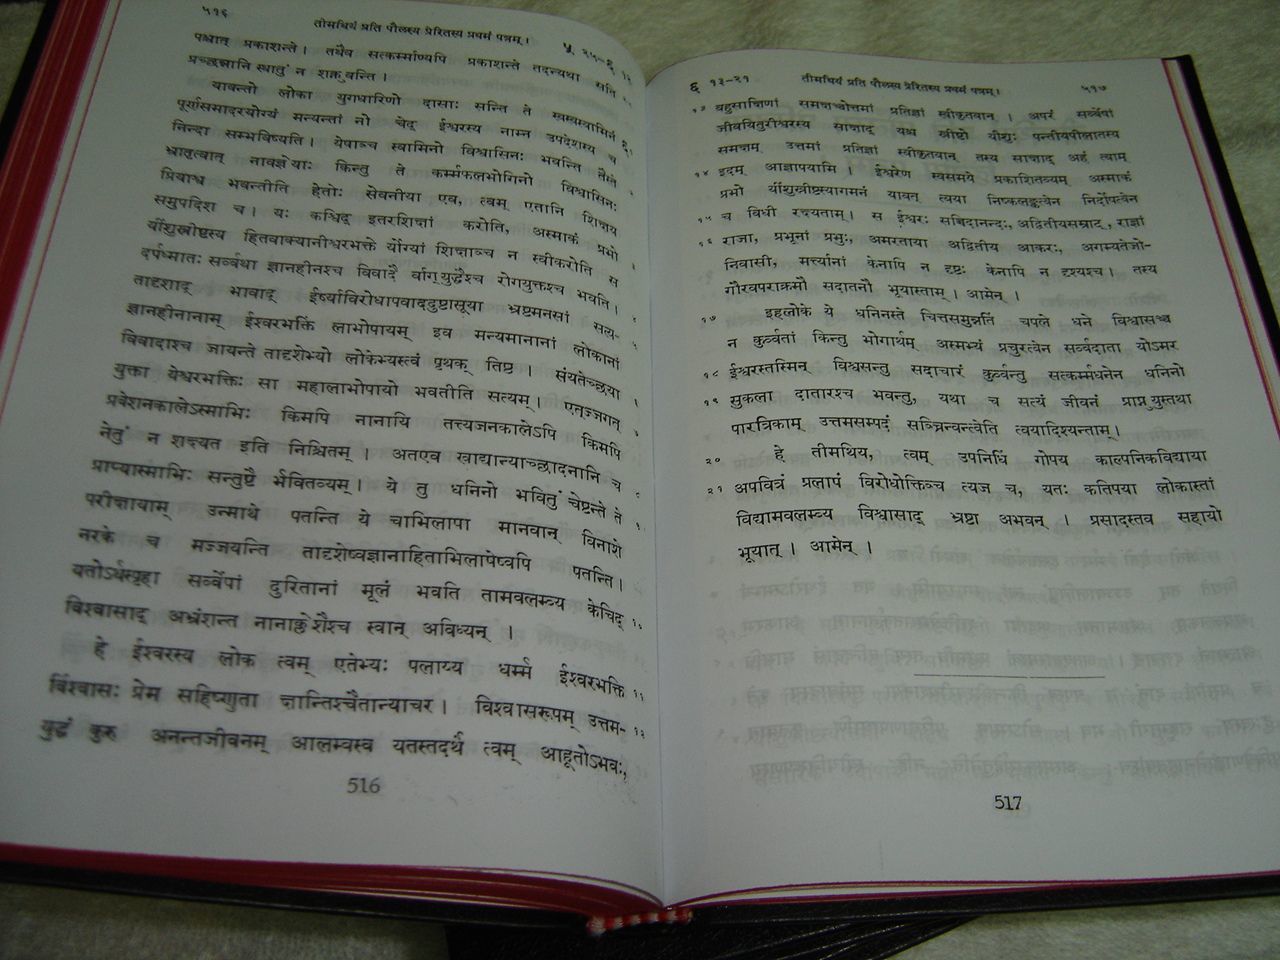 ५१६ तीमथियं प्रति पौलस्य प्रेरितस्य प्रथमं पत्रम् । ५ २५-६ १२
पश्चात् प्रकाशन्ते । तथैव सत्कर्म्माण्यपि प्रकाशन्ते तदन्यथा सति २५
प्रच्छन्नानि स्थातुं न शक्नुवन्ति ।
यावन्तो लोका युगधारिणो दासाः सन्ति ते स्वस्वस्वामिनं ६१
पूर्णसमादरयोग्यं मन्यन्तां नो चेद् ईश्वरस्य नाम्न उपदेशस्य च
निन्दा सम्भविष्यति । येषाञ्च स्वामिनो विश्वासिनः भवन्ति तैस्ते २
भ्रातृत्वात् नावज्ञेयाः किन्तु ते कर्म्मफलभोगिनो विश्वासिनः
प्रियाश्च भवन्तीति हेतोः सेवनीया एव, त्वम् एतानि शिक्षय
समुपदिश च । यः कश्चिद् इतरशिक्षां करोति, अस्माकं प्रभो ३
र्यीशुख्रीष्टस्य हितवाक्यानीश्वरभक्ते र्योग्यां शिक्षाञ्च न स्वीकरोति स
दर्पध्मातः सर्व्वथा ज्ञानहीनश्च विवादै र्वाग्युद्धैश्च रोगयुक्तश्च भवति । ४
तादृशाद् भावाद् ईर्ष्याविरोधापवाददुष्टासूया भ्रष्टमनसां सत्य- ५
ज्ञानहीनानाम् ईश्वरभक्तिं लाभोपायम् इव मन्यमानानां लोकानां
विवादाश्च जायन्ते तादृशेभ्यो लोकेभ्यस्त्वं पृथक् तिष्ठ । संयतेच्छया ६
युक्ता येश्वरभक्तिः सा महालाभोपायो भवतीति सत्यम् । एतज्जगत् ७
प्रवेशनकालेऽस्माभिः किमपि नानायि तत्त्यजनकालेऽपि किमपि
नेतुं न शक्ष्यत इति निश्चितम् । अतएव खाद्यान्याच्छादनानि च ८
प्राप्यास्माभिः सन्तुष्टै र्भवितव्यम् । ये तु धनिनो भवितुं चेष्टन्ते ते ९
परीक्षायाम् उन्माथे पतन्ति ये चाभिलाषा मानवान् विनाशे
नरके च मज्जयन्ति तादृशेष्वज्ञानाहिताभिलाषेष्वपि पतन्ति ।
यतोऽर्थस्पृहा सर्व्वेषां दुरितानां मूलं भवति तामवलम्ब्य केचिद् १०
विश्वासाद् अभ्रंशन्त नानाक्लेशैश्च स्वान् अविध्यन् ।
हे ईश्वरस्य लोक त्वम् एतेभ्यः पलाय्य धर्म्म ईश्वरभक्ति ११
र्विश्वासः प्रेम सहिष्णुता क्षान्तिश्चैतान्याचर । विश्वासरूपम् उत्तम- १२
युद्धं कुरु अनन्तजीवनम् आलम्बस्व यतस्तदर्थं त्वम् आहूतोऽभवः,
516
६ १३-२१ तीमथियं प्रति पौलस्य प्रेरितस्य प्रथमं पत्रम् । ५१७
१३ बहुसाक्षिणां समक्षञ्चोत्तमां प्रतिज्ञां स्वीकृतवान् । अपरं सर्व्वेषां
जीवयितुरीश्वरस्य साक्षाद् यश्च ख्रीष्टो यीशुः पन्तीयपीलातस्य
समक्षम् उत्तमां प्रतिज्ञां स्वीकृतवान् तस्य साक्षाद् अहं त्वाम्
१४ इदम् आज्ञापयामि । ईश्वरेण स्वसमये प्रकाशितव्यम् अस्माकं
प्रभो र्यीशुख्रीष्टस्यागमनं यावत् त्वया निष्कलङ्कत्वेन निर्दोषत्वेन
१५ च विधी रक्ष्यताम् । स ईश्वरः सच्चिदानन्दः, अद्वितीयसम्राट्, राज्ञां
१६ राजा, प्रभूनां प्रभुः, अमरताया अद्वितीय आकरः, अगम्यतेजो-
निवासी, मर्त्त्यानां केनापि न दृष्टः केनापि न दृश्यश्च । तस्य
गौरवपराक्रमौ सदातनौ भूयास्ताम् । आमेन् ।
१७ इहलोके ये धनिनस्ते चित्तसमुन्नतिं चपले धने विश्वासञ्च
न कुर्व्वतां किन्तु भोगार्थम् अस्मभ्यं प्रचुरत्वेन सर्व्वदाता योऽमर
१८ ईश्वरस्तस्मिन् विश्वसन्तु सदाचारं कुर्व्वन्तु सत्कर्म्मधनेन धनिनो
१९ सुकला दातारश्च भवन्तु, यथा च सत्यं जीवनं प्राप्नुयुस्तथा
पारत्रिकाम् उत्तमसम्पदं सञ्चिन्वन्त्वेति त्वयादिश्यन्ताम् ।
२० हे तीमथिय, त्वम् उपनिधिं गोपय काल्पनिकविद्याया
२१ अपवित्रं प्रलापं विरोधोक्तिञ्च त्यज च, यतः कतिपया लोकास्तां
विद्यामवलम्ब्य विश्वासाद् भ्रष्टा अभवन् । प्रसादस्तव सहायो
भूयात् । आमेन् ।
517